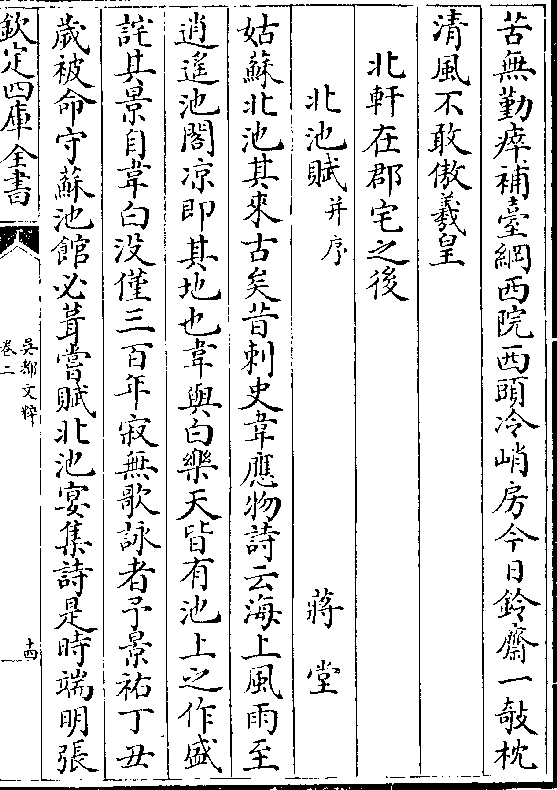 苦無勤瘁補臺綱西院西頭冷峭房今日鈴齋一敧枕
清風不敢傲羲皇
北軒在郡宅之後
北池賦并序
蔣堂
姑蘇北池其來古矣昔刺史韋應物詩云海上風雨至
逍遙池閣凉即其地也韋與白樂天皆有池上之作盛
詫其景自韋白没僅三百年寂無歌詠者予景祐丁丑
歲被命守蘇池館必葺嘗賦北池宴集詩是時端明張
欽定四庫全書
吳都文粹
卷二
十四